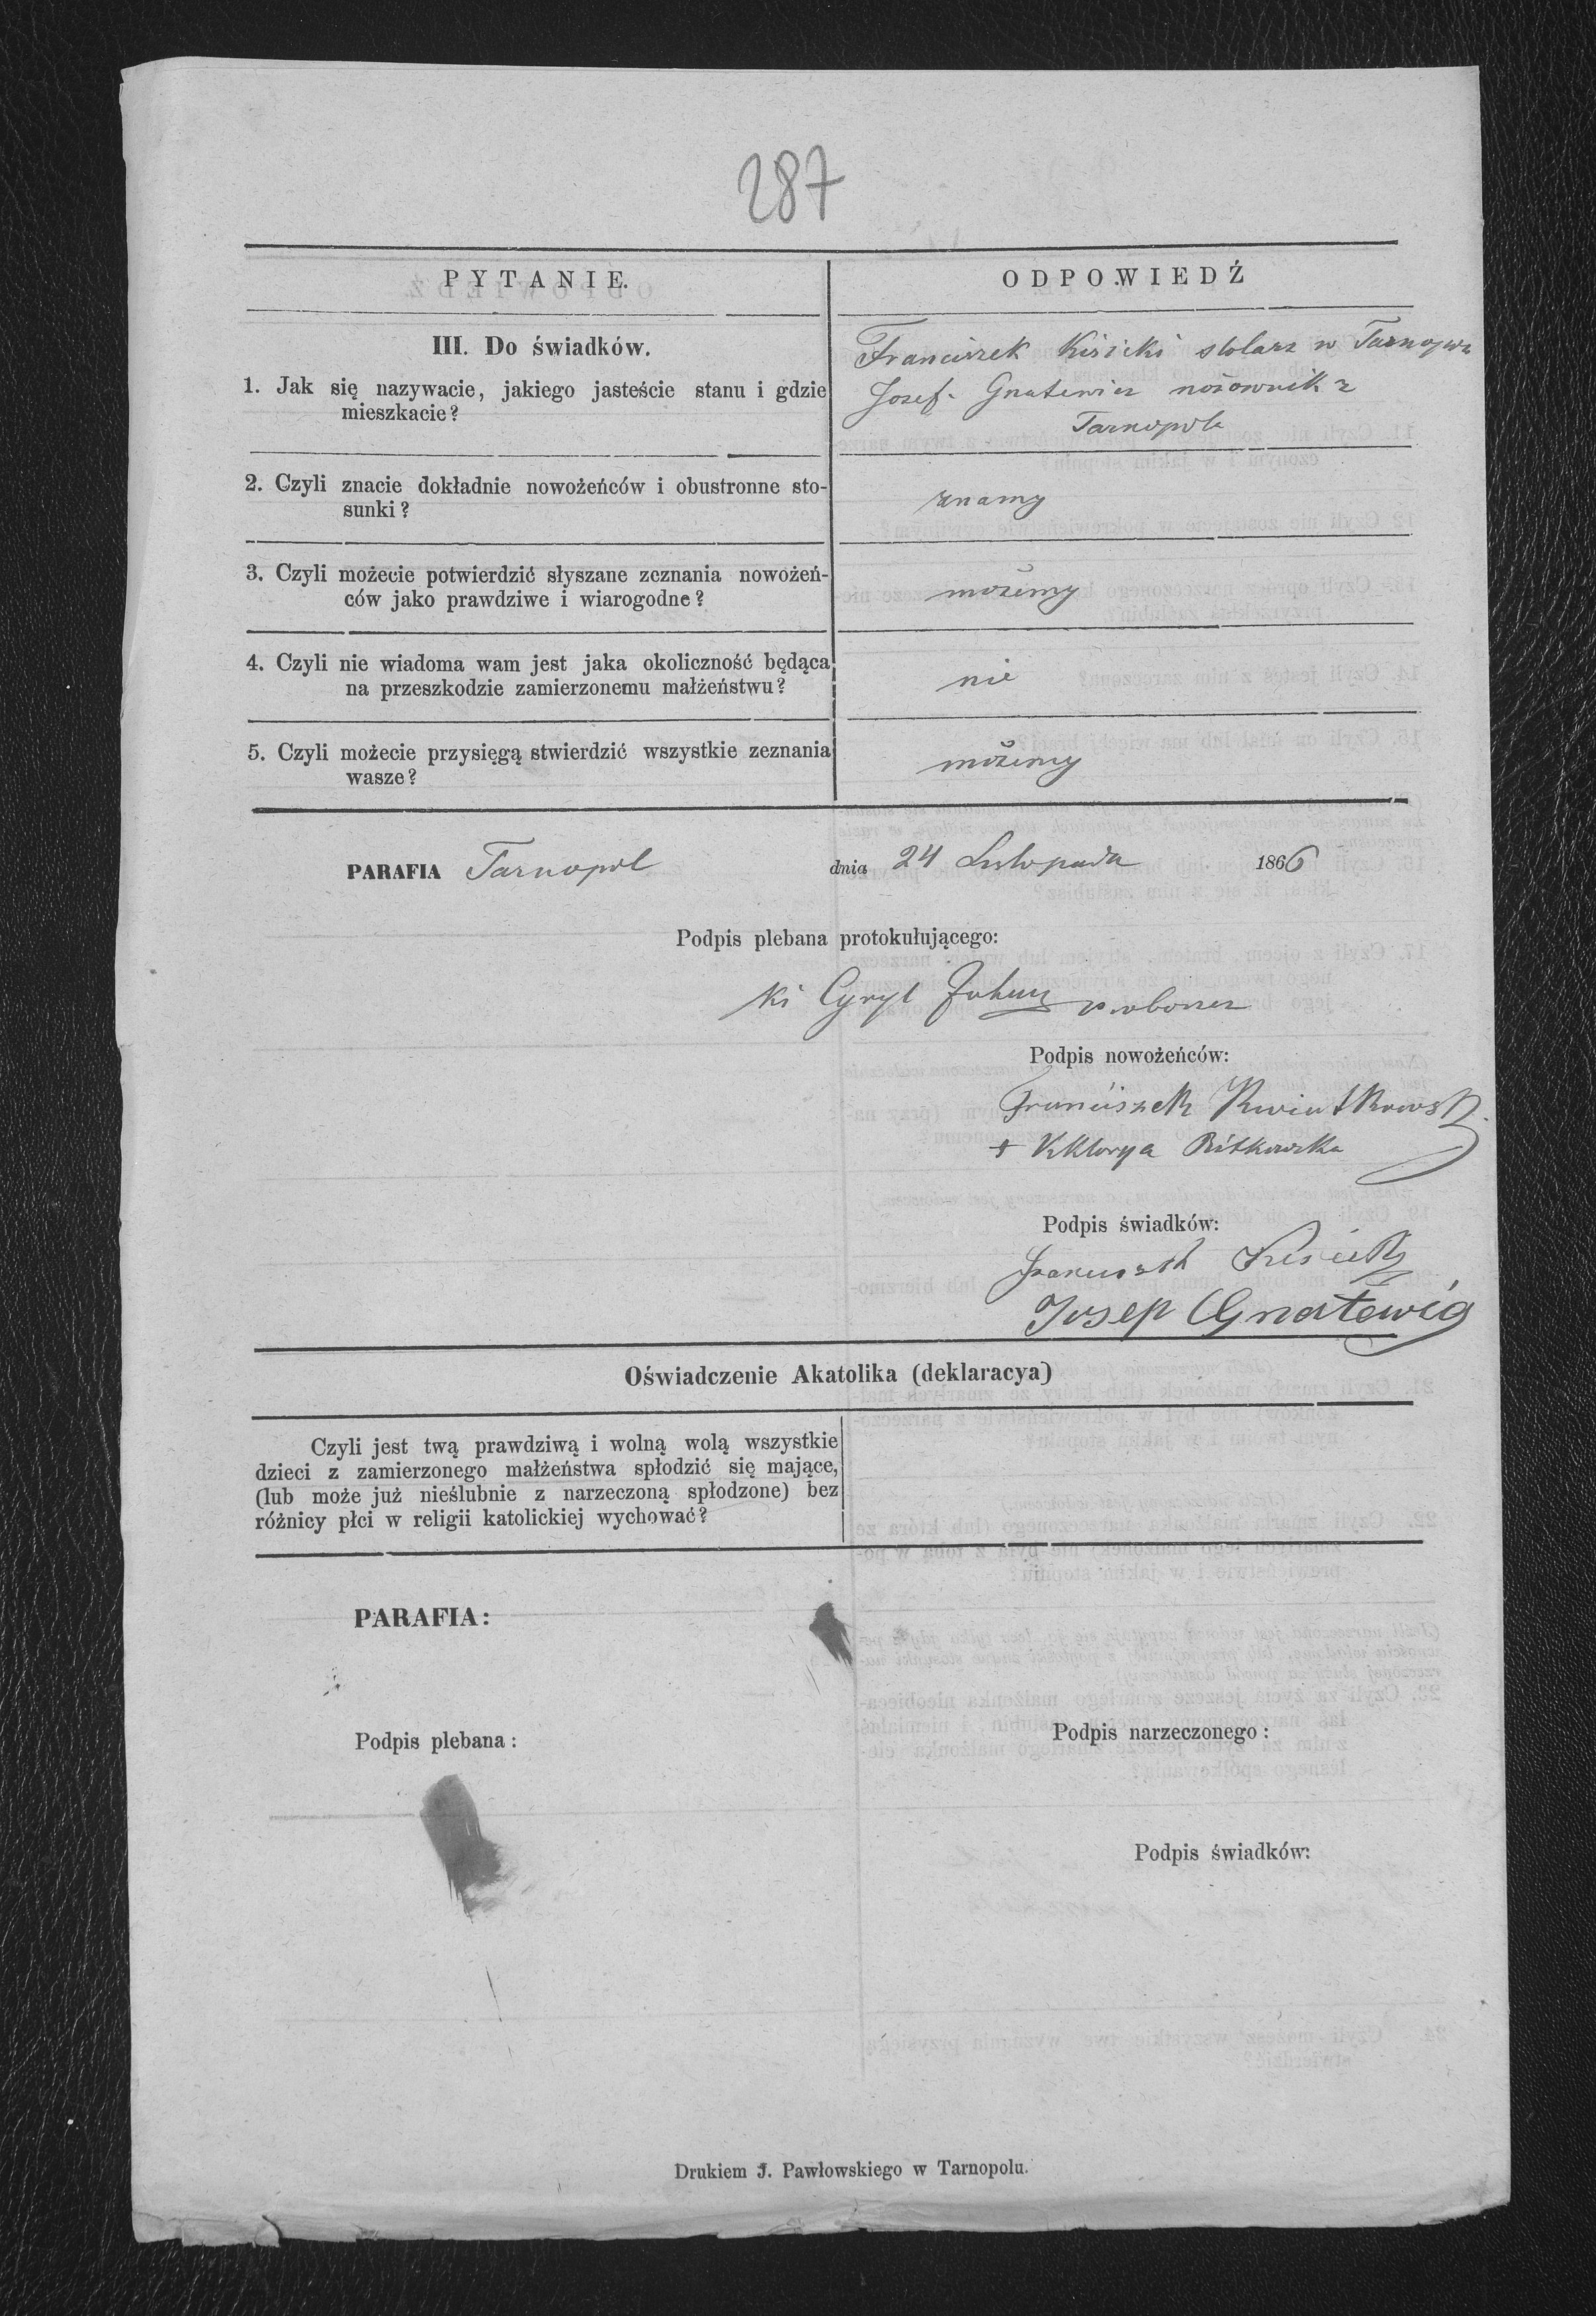 287
PYTANIE.
ODPOWIEDŹ
III. Do świadków.
1. Jak się nazywacie, jakiego jasteście stanu i gdzie
mieszkacie?
Franciszek Kisicki stolarz w Tarnopolu
Josef Gnatewicz nożownik z
Tarnopola
2. Czyli znacie dokładnie nowożeńców i obustronne sto-
sunki?
znamy
3. Czyli możecie potwierdzić słyszane zeznania nowożeń-
ców jako prawdziwe i wiarogodne?
możemy
4. Czyli nie wiadoma wam jest jaka okoliczność będąca
na przeszkodzie zamierzonemu małżeństwu?
nie
5. Czyli możecie przysięgą stwierdzić wszystkie zeznania
wasze?
możemy
PARAFIA Tarnopol dnia 24 Listopada 1866
Podpis plebana protokułującego:
Cyryl
Podpis nowożeńców:
Franciszek Kwiatkowski
+ Viktorya
Podpis świadków:
Josep Gnatewicz
Oświadczenie Akatolika (deklaracya)
Czyli jest twą prawdziwą i wolną wolą wszystkie
dzieci z zamierzonego małżeństwa spłodzić się mające,
(lub może już nieślubnie z narzeczoną spłodzone) bez
różnicy płci w religii katolickiej wychować?
PARAFIA:
Podpis plebana:
Podpis narzeczonego:
Podpis świadków:
Drukiem J. Pawłowskiego w Tarnopolu.